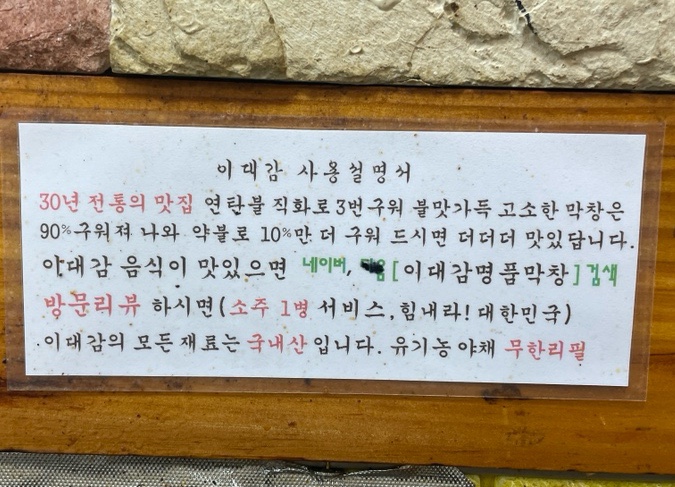 이대감 사용설명서
30년 전통의 맛집 연탄불 직화로 3번구워 불맛가득 고소한 막창은
90%구워져 나와 약불로 10%만 더 구워 드시면 더더더 맛있답니다.
이대감 음식이 맛있으면 네이버, [이대감명품막창]검색
방문리뷰 하시면(소주 1병 서비스,힘내라! 대한민국)
이대감의 모든재료는 국내산입니다. 유기농야채 무한리필